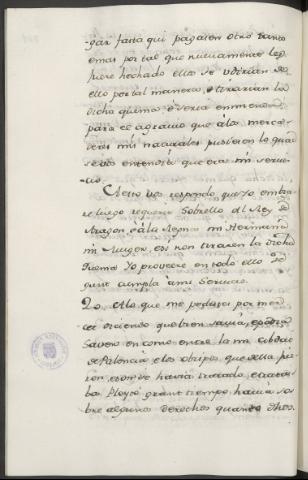 gar fasta qui pagaren otro tanto
emas por tal que nuevamente les
fuere hechado ellos se vernian de
ello por tal manera, e tirarian la
dicha quema e seria enmienda
para el agravio que a los merca-
deres mis naturales pusieron lo qual
se vos entendia que era mi servi-
cio.
A esto vos respondo que yo embia-
re luego requerir sobrello al Rey de
Aragon e a la Reyna mi Hermana
mi Muger, e si non tiraren la dicha
quema Yo proveere en todo ello se-
gunt cumpla a mi servicio.
20. A lo que me pedistes por mer-
ced diciendo que bien savia, e podia
saver en como entre la mi cibdat
de Palencia e los obispos que della fue-
ron, e son se havia tratado, e trata-
ba Pleyto grant tiempo havia so-
bre algunos derechos quanto dhos.